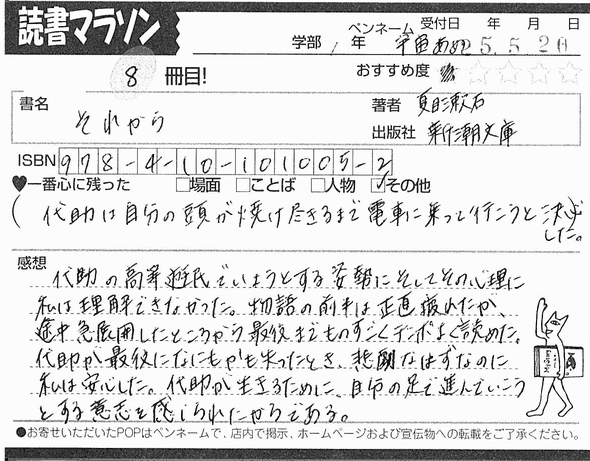 読書マラソン
ペンネーム 受付日 年 月 日
学部 1 年 宇宙あめ 25.5.20
8 冊目! おすすめ度 ★☆☆☆☆
書名 それから
著者 夏目漱石
出版社 新潮文庫
ISBN 978-4-10-101005-2
♥一番心に残った □場面 □ことば □人物 ☑その他
(代助は自分の頭が焼け尽きるまで電車に乗って行こうと決心
した。
感想
代助の高等遊民でいようとする姿勢にそしてその心理に
私は理解できなかった。物語の前半は正直疲れたが、
途中急展開したところから最後までものすごくテンポよく読めた。
代助が最後になにもかも失ったとき、悲劇なはずなのに
私は安心した。代助が生きるために、自分の足で進んでいこう
とする意志を感じられたからである。
●お寄せいただいたPOPはペンネームで、店内で掲示、ホームページおよび宣伝物への転載をご了承ください。